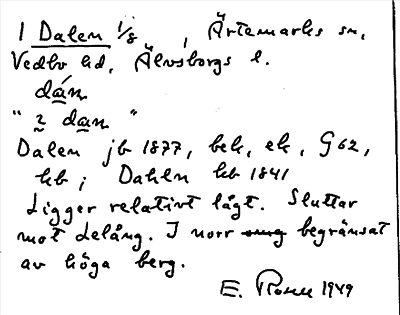 1 Dalen 1/8, Ärtemarks sn,
Vedbo hd, Älvsborgs l.
dán
" 2 dan "
Dalen jb 1877, bek, ek, G 62,
kb; Dahln hb 1841
Ligger relativt lågt. Sluttar
mot Lelång. I norr begränsat
av höga berg.
E. Rosell 1949